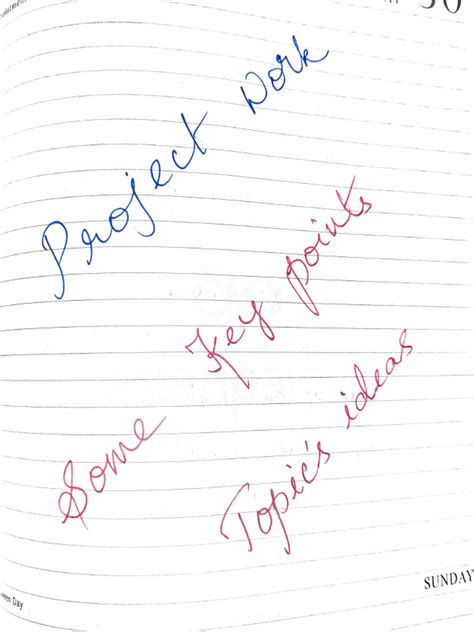 30
Project Work
Some Key points
Topic's ideas
SUNDAY